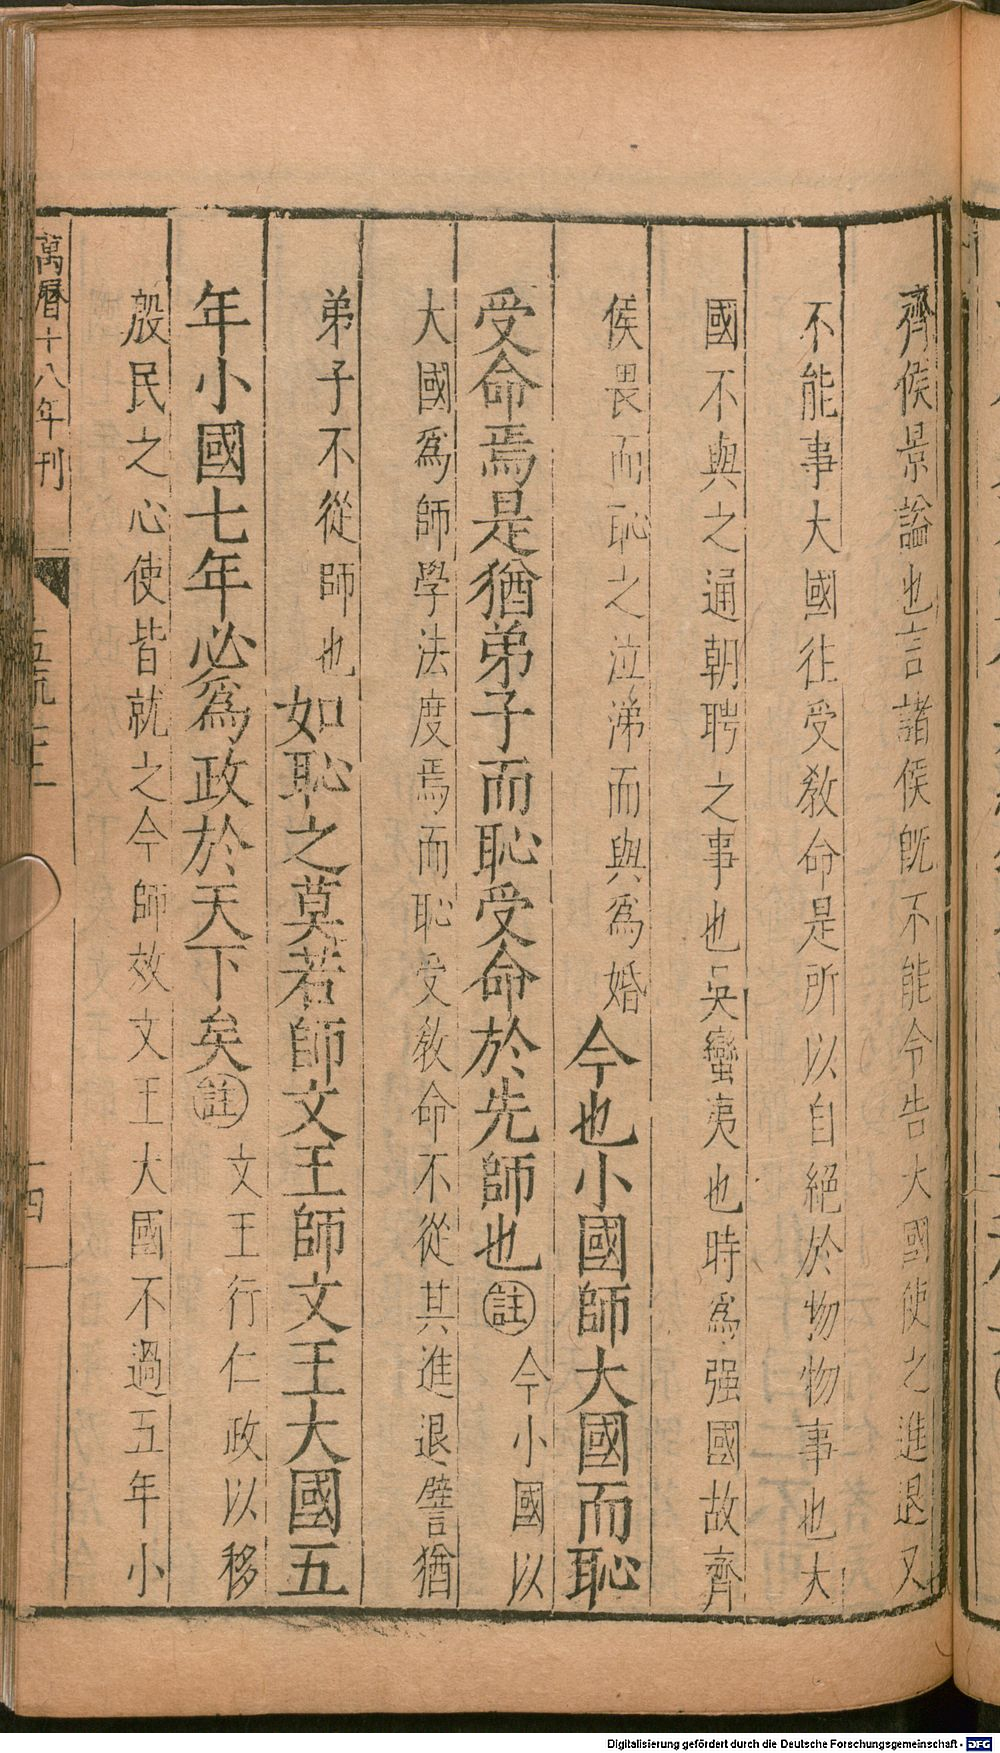 齊侯景諡也言諸侯旣不能令告大國使之進退又
不能事大國往受敎命是所以自絕於物物事也大
國不與之通朝聘之事也吳蠻夷也時爲强國故齊
侯畏而恥之泣涕而與爲婚今也小國師大國而恥
受命焉是猶弟子而恥受命於先師也註今小國以
大國爲師學法度焉而恥受敎命不從其進退譬猶
弟子不從師也如恥之莫若師文王師文王大國五
年小國七年必爲政於天下矣註文王行仁政以移
殷民之心使皆就之今師效文王大國不過五年小
萬曆十八年刊
Digitalisierung gefördert durch die Deutsche Forschungsgemeinschaft - DFG